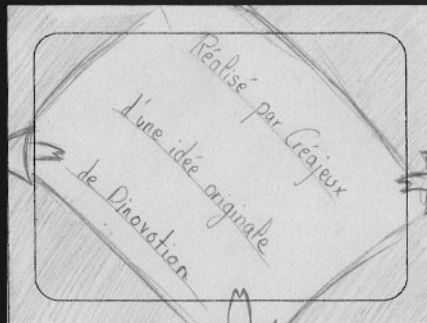 Réalisé par Créajeux
d'une idée originale
de Dinovation